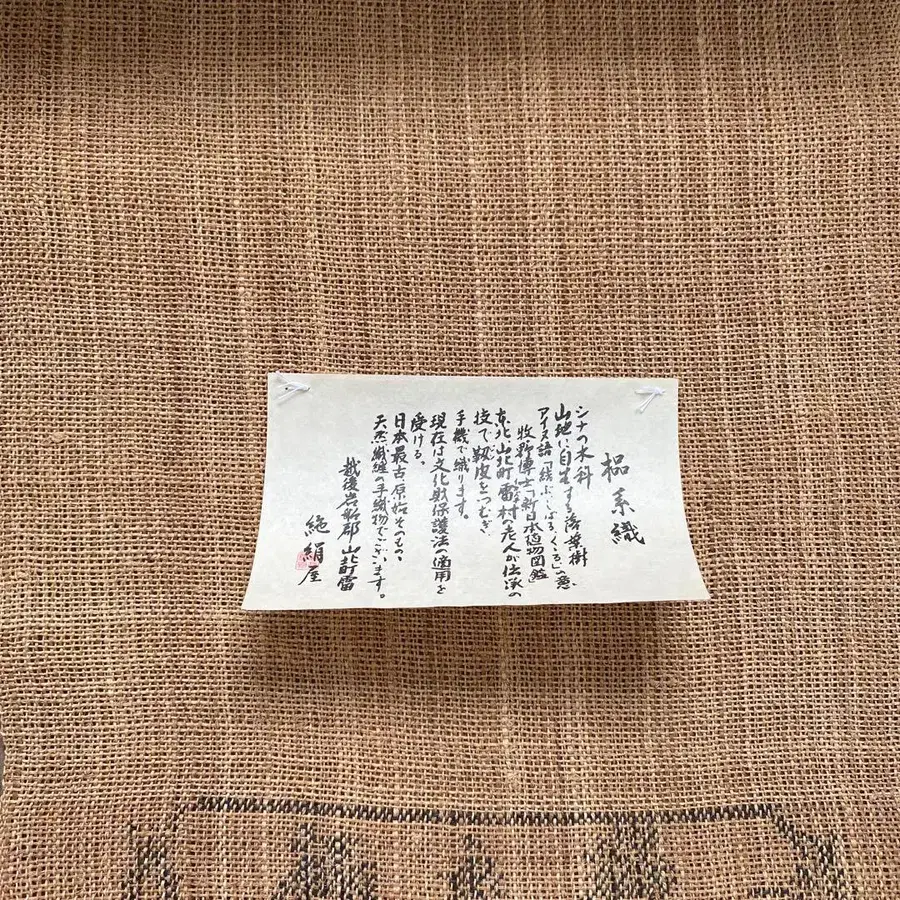 榀糸織
シナの木科
山地に自生する落葉樹
アイヌ語「結ぶ、しばる、くくる」の意、
牧野博士「新日本植物図鑑」
東北山北町雷村の老人が伝承の
技で靱皮をつむぎ
手機で織ります。
現在は文化財保護法の適用を
受ける。
日本最古原始そのもの、
天然繊維の手織物でございます。
越後岩船郡山北町雷
絁絹屋